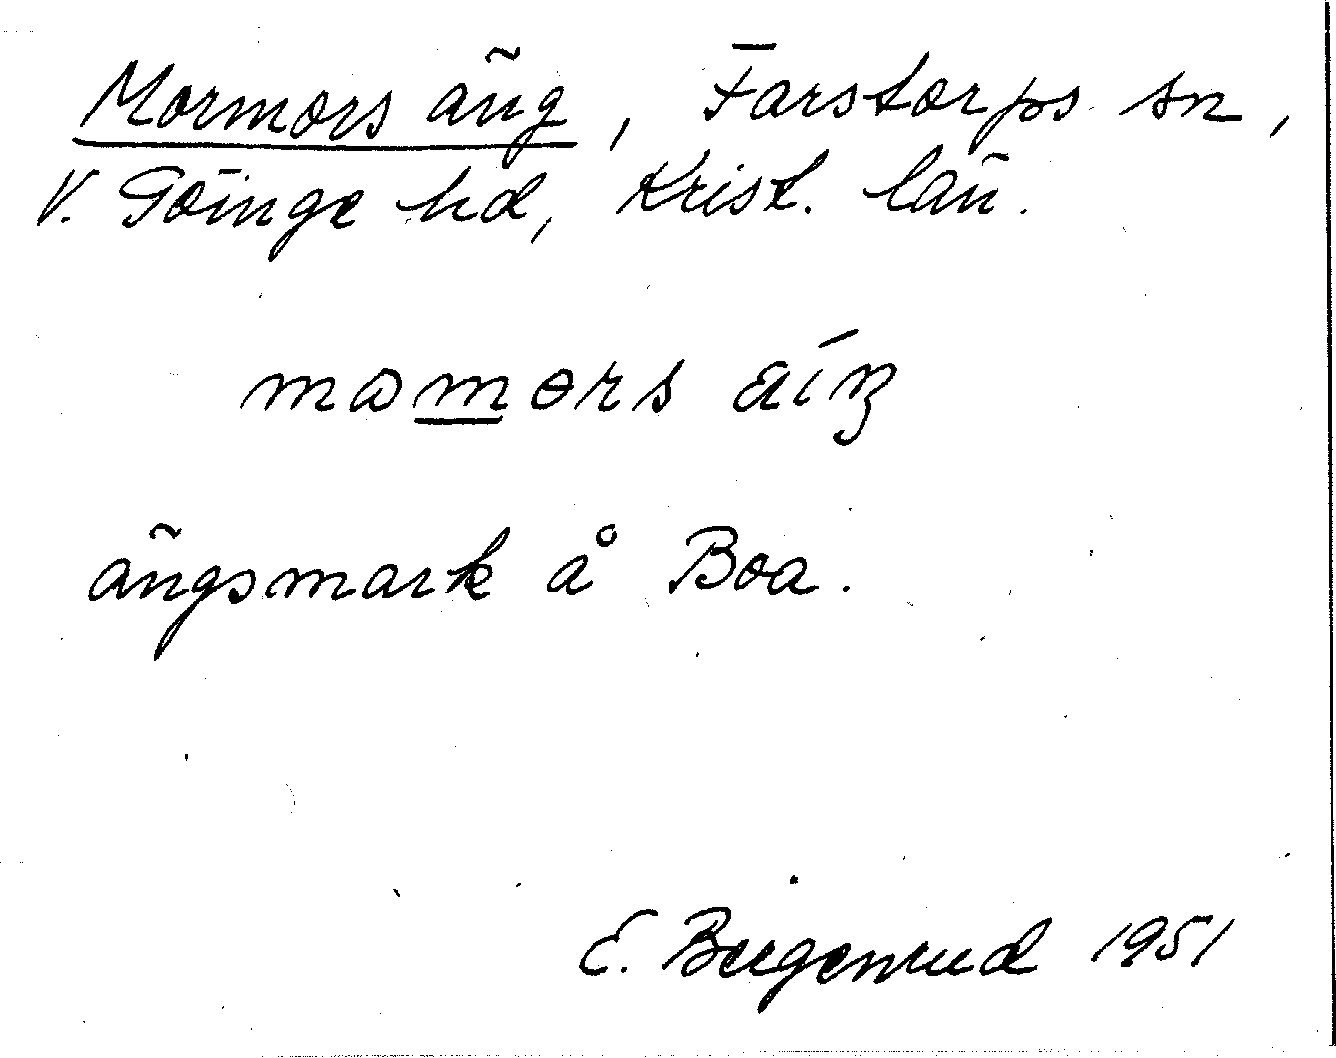 Mormors äng, Farstorps sn,
V. Göinge hd, Krist. län.
mɷmɵrs áíŋ
ängsmark å Boa.
E. Bergenrud 1951